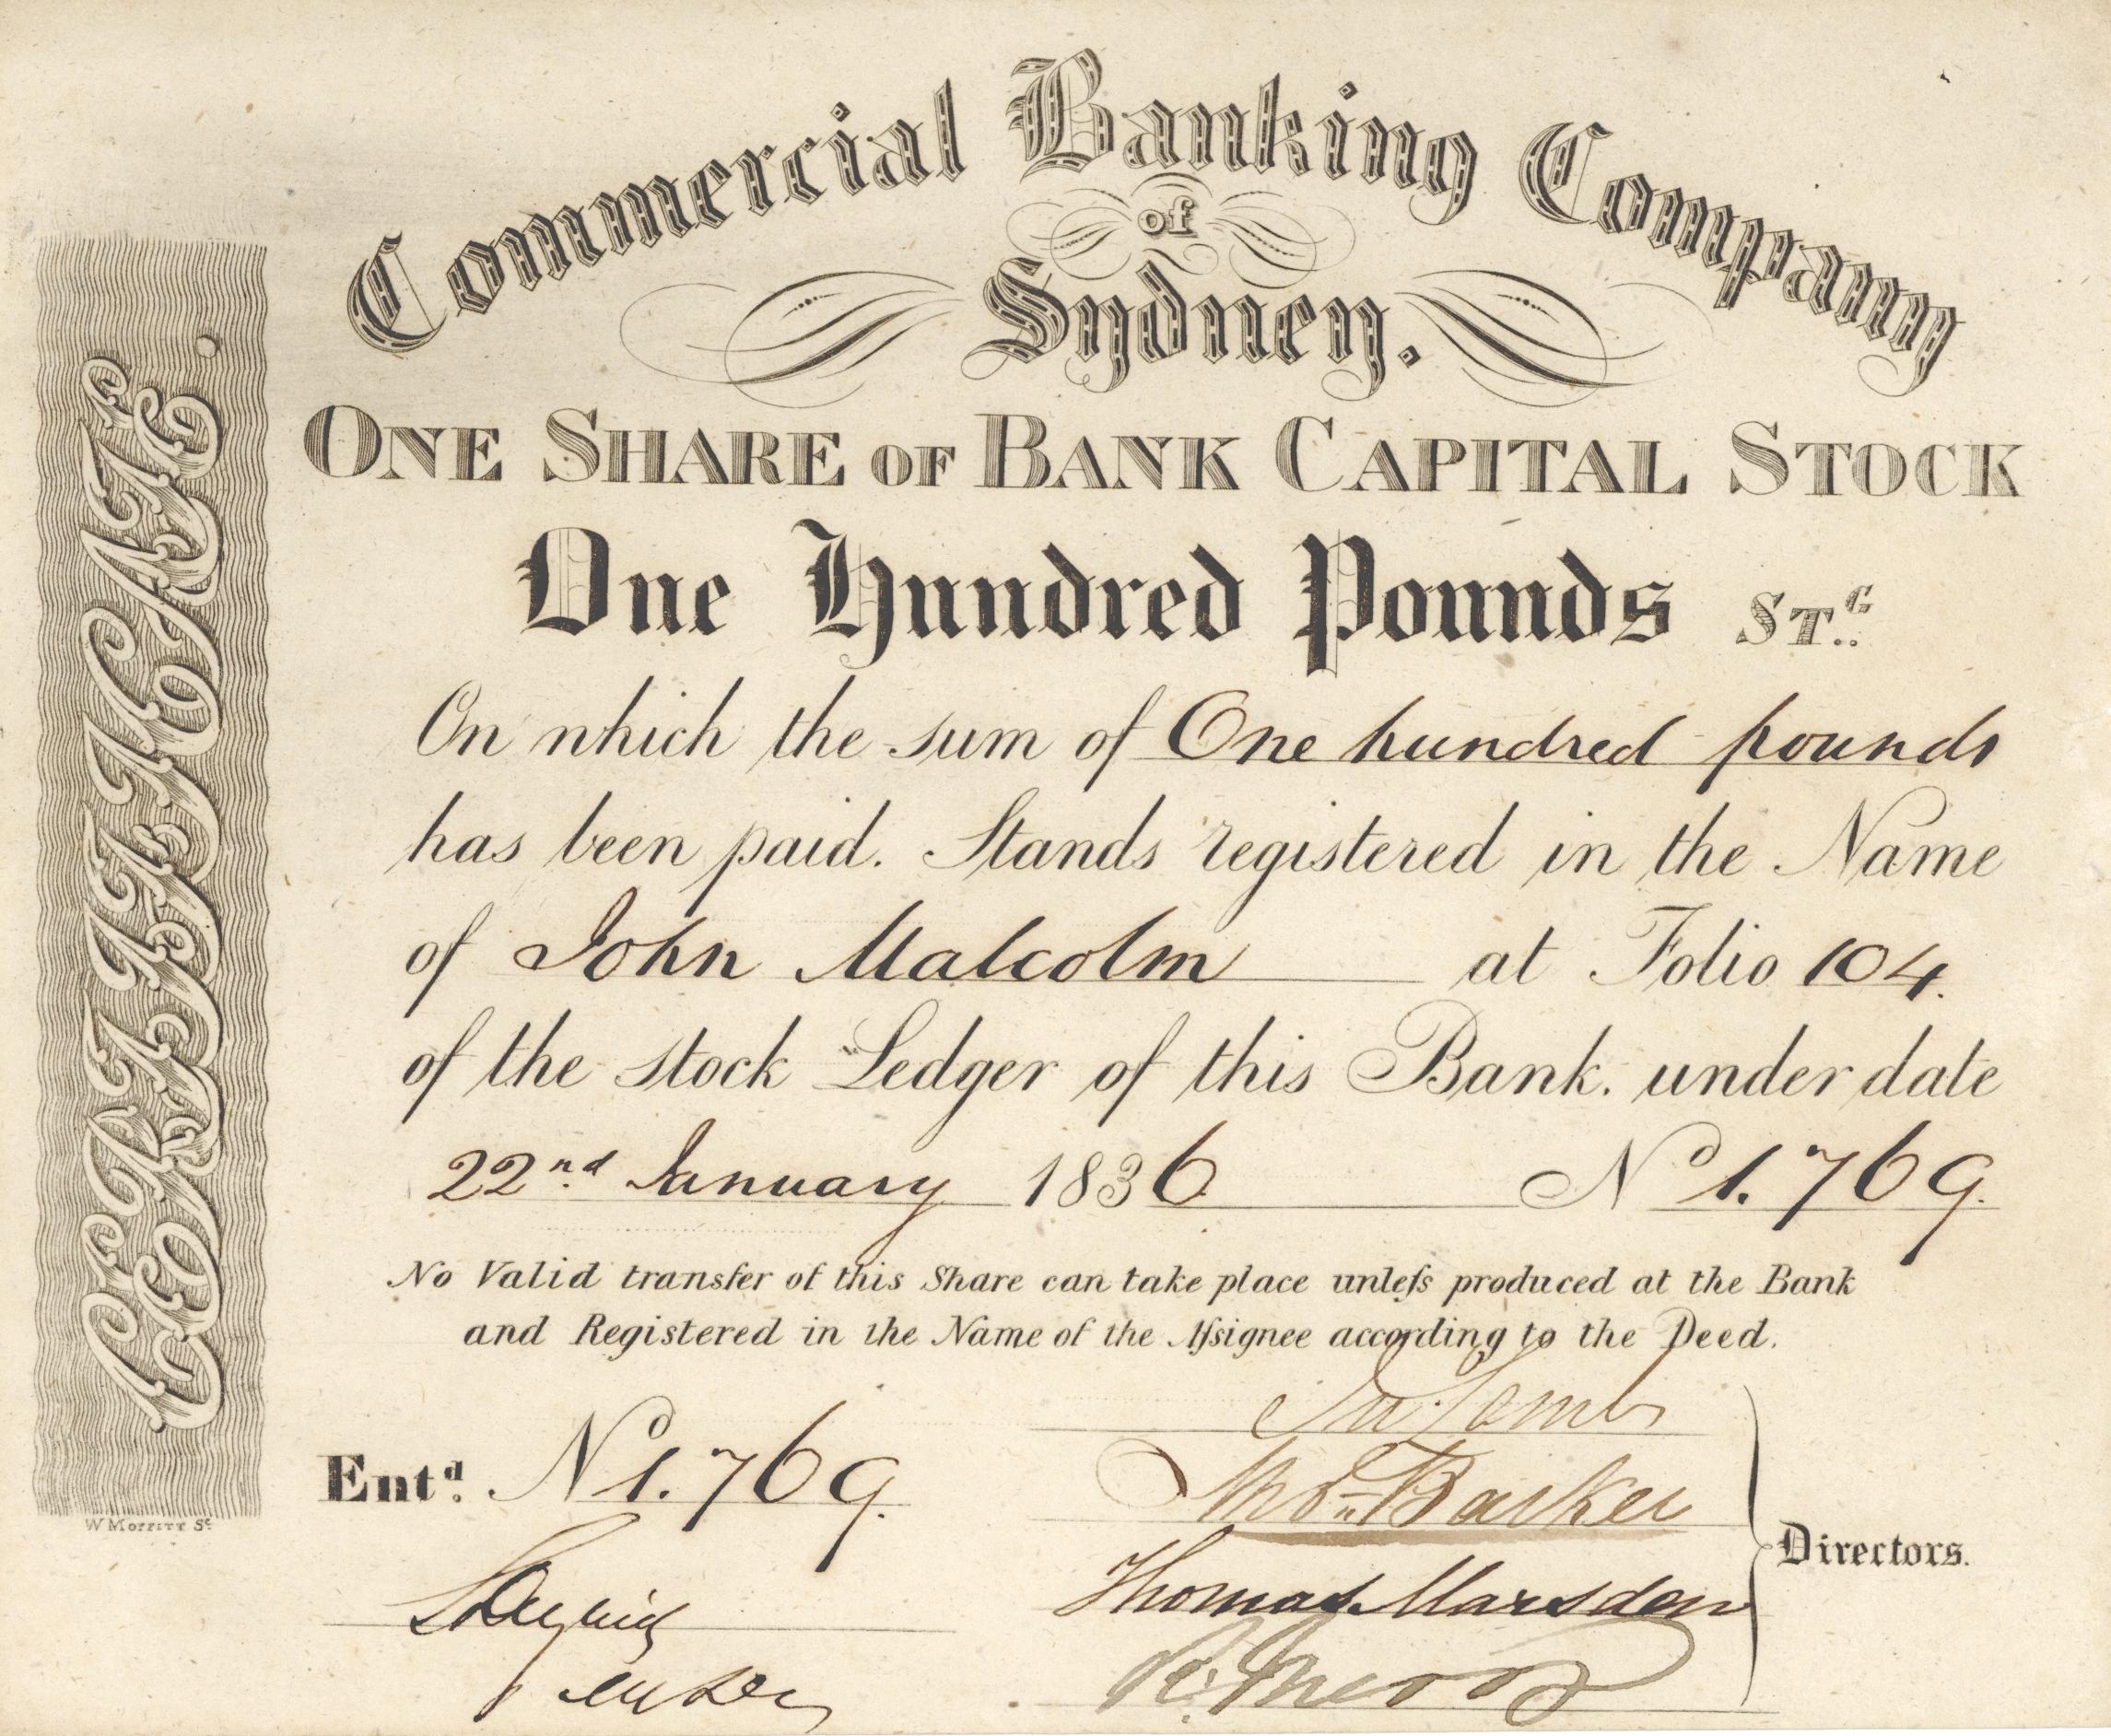 Commercial Banking Company
of
Sydney.
ONE SHARE OF BANK CAPITAL STOCK
One Hundred Pounds ST.G
On which the sum of One hundred pounds
has been paid. Stands registered in the Name
of John Malcolm at Folio 104.
of the stock Ledger of this Bank. under date
22nd January 1836 No 1.769.
No Valid transfer of this Share can take place unleſs produced at the Bank
and Registered in the Name of the Aſsignee according to the Deed.
Entd. No 1.769.
Jn Lamb
Thos Barker
Thomas Marsden
Directors.
CERTIFICATE.